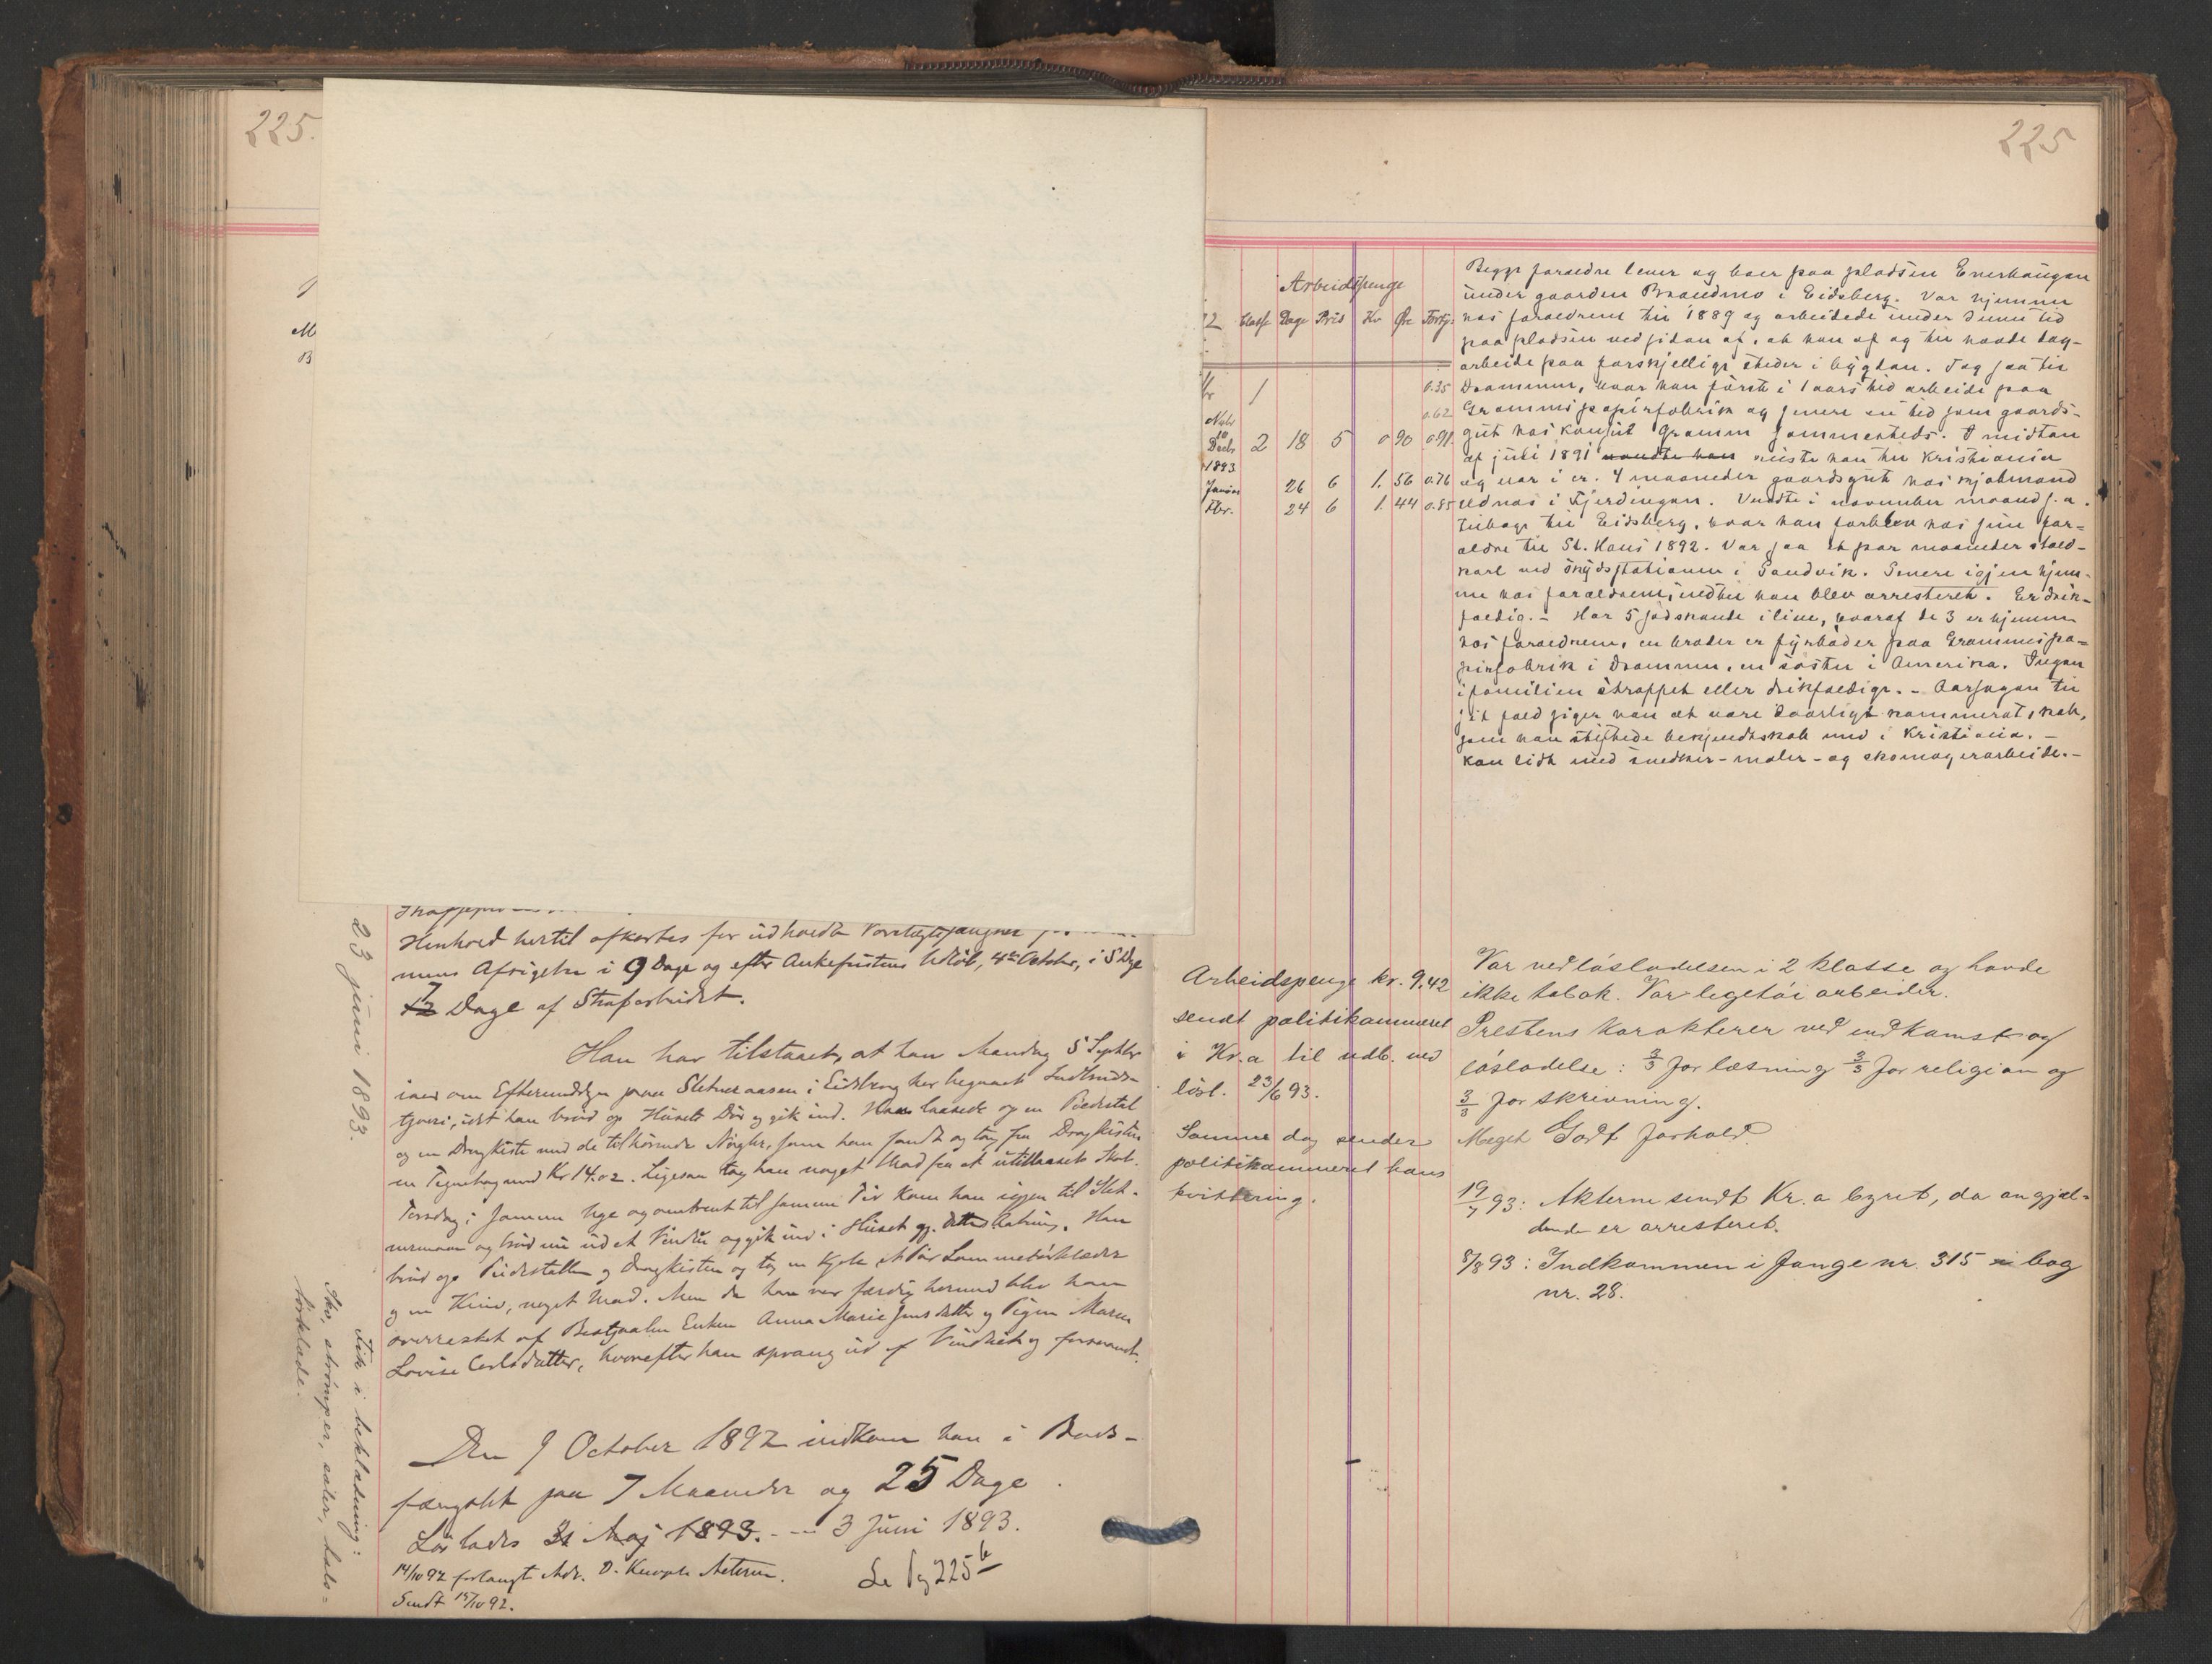 225.
M
B
Henhold hertil afkortes for udholdt Varetægtsfængsel
mens Afsigelse i 9 Dage og efter Ankefristens Udløb, 4de October, i 8 Dage
17 Dage af Strafarbeidet.
Han har tilstaaet, at han Mandag 5 Septbr
iaar om Eftermiddagen paa Sletneraasen i Eidsberg har begaaet Indbruds-
tyveri, idet han brød op Husets Dør og gik ind. Han laasede op en Piedestal
og en Dragkiste med de tilhørende Nøgler, som han fandt og tog fra Dragkisten
en Tegnebog med Kr 14.02. Ligesaa tog han noget Mad fra et utillaaset Skab.
Torsdag i samme Uge og omtrent til samme Tid kom han igjen til Slet-
neraasen og brød nu ud et Vindu og gik ind i Huset gj. dette Aabning. Han
brød op Piedestallen og Dragkisten og tog en Kjole, et Par Lommetørklæder
og en Kniv, noget Mad. Men da han var færdig hermed blev han
overrasket af Bestjaalne Enken Anna Marie Jensdatter og Pigen Maren
Lovise Carlsdatter, hvorefter han sprang ud af Vinduet og forsvandt.
Den 9 October 1892 indkom han i Bods-
fængslet paa 7 Maaneder og 25 Dage.
Løslades 31 Maj 1893. - 3 Juni 1893.
14/10 92 forlangt Adr. D. Aetern.
Sendt 14/10 92.
Se Pg 225 b
23 juni 1893.
Fik i beklædning:
Sko, strømper, seler, hals-
tørklæde.
225
Arbeidspenge
Classe Dage Pris Kr Øre Fortj.
1 0.35
Novbr 0.62
10
Decbr 2 18 5 0 90 0.91
1893
Januar 26 6 1. 56 0.76
Fbr. 24 6 1. 44 0.85
Begge forældre lever og boer paa pladsen Enerhaugen
under gaarden Brandmo i Eidsberg. Var hjemme
hos forældrene til 1889 og arbeidede under denne tid
paa pladsen ved siden af, at han af og til havde dag-
arbeide paa forskjellige steder i bygden. Tog saa til
Drammen, hvor han først i 1 aars tid arbeide paa
Grammis papirfabrik og senere en tid som gaards-
gut hos konsul Gramm sammesteds. I midten
af juli 1891 vendte han reiste han til Kristiania
og var i cr. 4 maaneder gaardsgut hos kjøbmand
Udnæs i Fjerdingen. Vendte i november maaned s. a.
tilbage til Eidsberg, hvor han forblev hos sine for-
ældre til St. Hans 1892. Var saa et par maaneder stald-
karl ved skydsstationen i Sandvik. Senere igjen hjem-
me hos forældrene, indtil han blev arresteret. Er drik-
fældig. - Har 5 sødskende i live, hvoraf de 3 er hjemme
hos forældrene, en broder er fyrbøder paa Grammis pa-
pirfabrik i Drammen, en søster i Amerika. Ingen
i familien straffet eller drikfældige. - Aarsagen til
sit fald siger han at være daarligt kammeratskab,
som han stiftede bekjendtskab med i Kristiania. -
Kan lidt med snedker- maler- og skomagerarbeide. -
Arbeidspenge kr. 9.42
sendt politikammeret
i Kr.a til udb. ved
løsl. 23/6 93.
Samme dag sender
politikammeret hans
kvittering.
Var ved løsladelsen i 2 klasse og havde
ikke tabak. Var legetøi arbeider.
Prestens karakterer ved indkomst og
løsladelse: 3/3 for læsning 3/3 for religion og
3/3 for skrivning.
Meget Godt forhold.
19/7 93: Akterne sendt Kr.a byret, da angjæl-
dende er arresteret.
8/8 93: Indkommen i fange nr. 315 i bog
nr. 28.